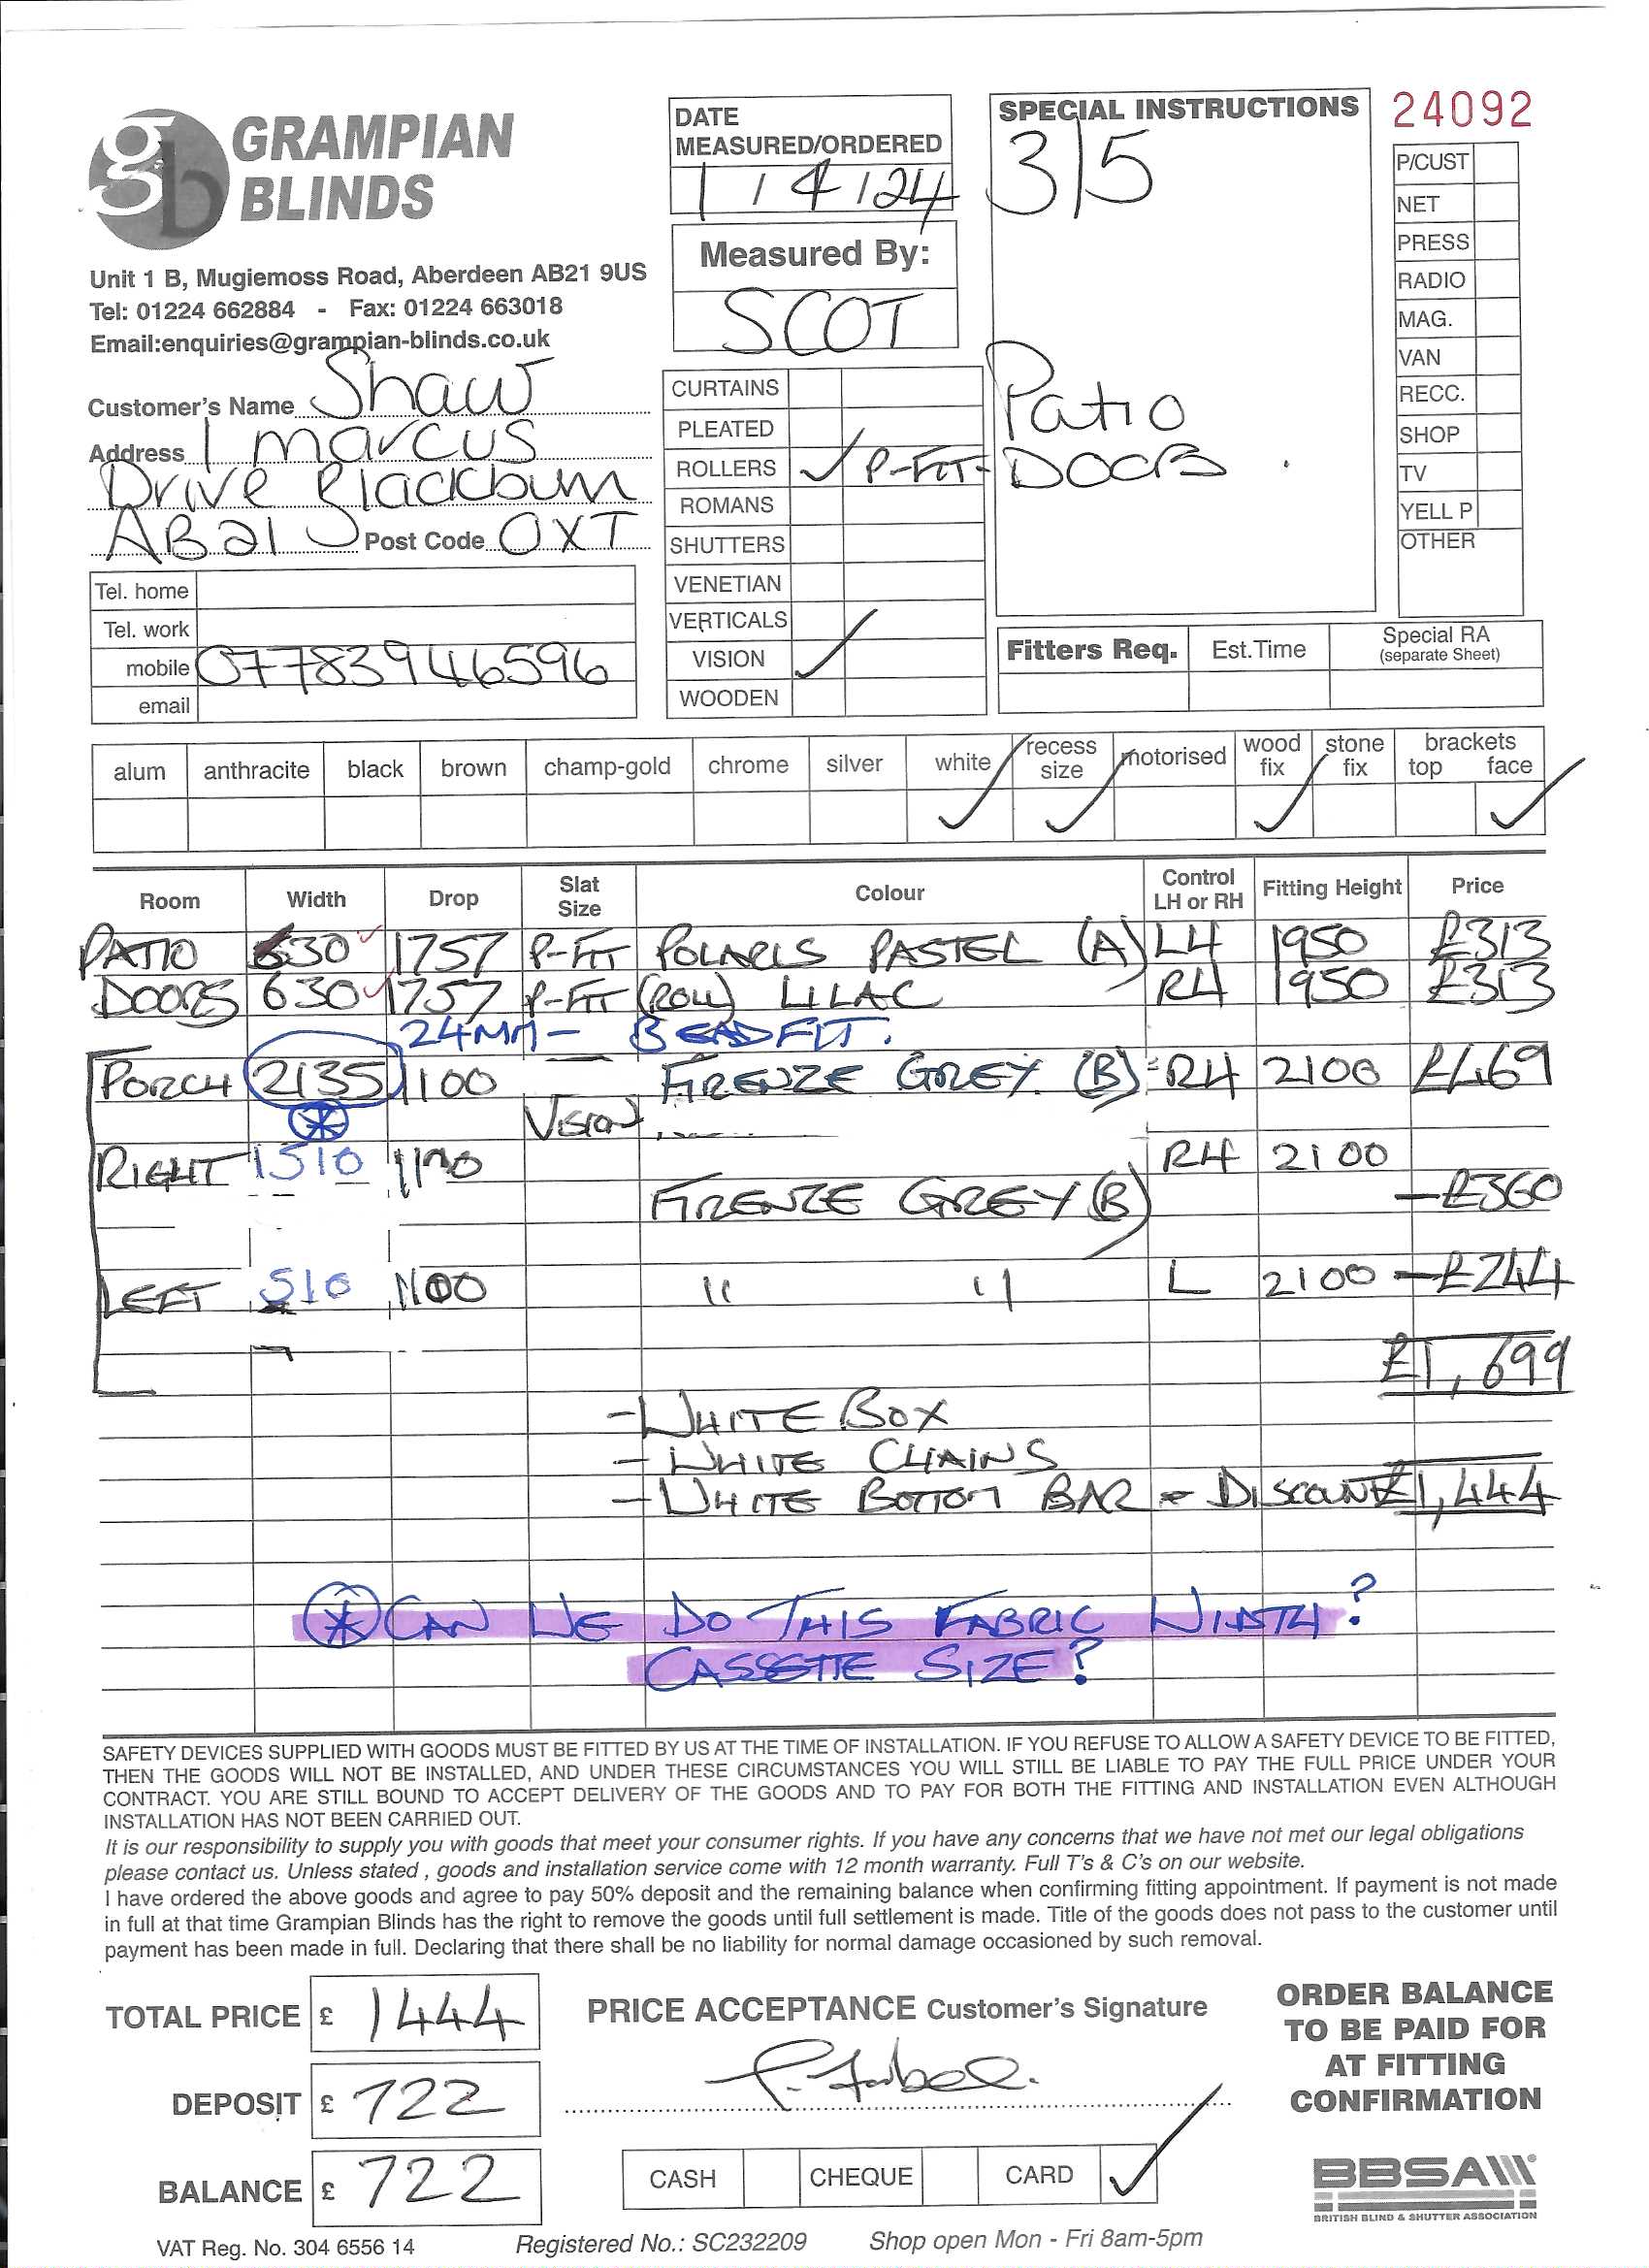 GRAMPIAN
BLINDS
Unit 1 B, Mugiemoss Road, Aberdeen AB21 9US
Tel: 01224 662884 - Fax: 01224 663018
Email:enquiries@grampian-blinds.co.uk
Customer's Name Shaw
Address 1 marcus
Drive Blackburn
AB21 Post Code 0XT
Tel. home
Tel. work
mobile 07783946596
email
DATE
MEASURED/ORDERED
1/4/24
Measured By:
SCOT
CURTAINS
PLEATED
ROLLERS ✓ P-FIT-
ROMANS
SHUTTERS
VENETIAN
VERTICALS
VISION ✓
WOODEN
SPECIAL INSTRUCTIONS
3/5
Patio
DOORS
24092
P/CUST
NET
PRESS
RADIO
MAG.
VAN
RECC.
SHOP
TV
YELL P
OTHER
Fitters Req. Est.Time Special RA
(separate Sheet)
alum anthracite black brown champ-gold chrome silver white recess size motorised wood fix stone fix brackets top face
✓ ✓ ✓ ✓
Room Width Drop Slat Size Colour Control LH or RH Fitting Height Price
PATIO 630 ✓ 1757 P-FIT POLARIS PASTEL (A) LH 1950 £313
DOORS 630 ✓ 1757 P-FIT (ROLL) LILAC RH 1950 £313
24MM - BEADFIT.
PORCH 2135 1100 FIRENZE GREY (B) RH 2100 £469
* VISION
RIGHT 1510 1100 RH 2100
FIRENZE GREY (B) - £360
LEFT 510 1100 " " L 2100 - £244
£1,699
- WHITE BOX
- WHITE CHAINS
- WHITE BOTTOM BAR - DISCOUNT £1,444
* CAN WE DO THIS FABRIC WIDTH?
CASSETTE SIZE?
SAFETY DEVICES SUPPLIED WITH GOODS MUST BE FITTED BY US AT THE TIME OF INSTALLATION. IF YOU REFUSE TO ALLOW A SAFETY DEVICE TO BE FITTED,
THEN THE GOODS WILL NOT BE INSTALLED, AND UNDER THESE CIRCUMSTANCES YOU WILL STILL BE LIABLE TO PAY THE FULL PRICE UNDER YOUR
CONTRACT. YOU ARE STILL BOUND TO ACCEPT DELIVERY OF THE GOODS AND TO PAY FOR BOTH THE FITTING AND INSTALLATION EVEN ALTHOUGH
INSTALLATION HAS NOT BEEN CARRIED OUT.
It is our responsibility to supply you with goods that meet your consumer rights. If you have any concerns that we have not met our legal obligations
please contact us. Unless stated , goods and installation service come with 12 month warranty. Full T's & C's on our website.
I have ordered the above goods and agree to pay 50% deposit and the remaining balance when confirming fitting appointment. If payment is not made
in full at that time Grampian Blinds has the right to remove the goods until full settlement is made. Title of the goods does not pass to the customer until
payment has been made in full. Declaring that there shall be no liability for normal damage occasioned by such removal.
TOTAL PRICE £ 1444
DEPOSIT £ 722
BALANCE £ 722
PRICE ACCEPTANCE Customer's Signature
CASH CHEQUE CARD ✓
ORDER BALANCE
TO BE PAID FOR
AT FITTING
CONFIRMATION
BBSA
BRITISH BLIND & SHUTTER ASSOCIATION
VAT Reg. No. 304 6556 14 Registered No.: SC232209 Shop open Mon - Fri 8am-5pm